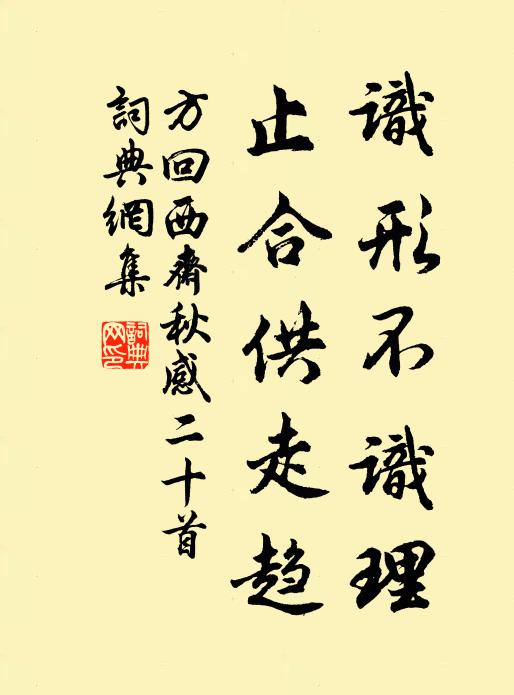 識形不識理
止合供走趋
方回西齋秋感二十首
詞典網集
詞典網印